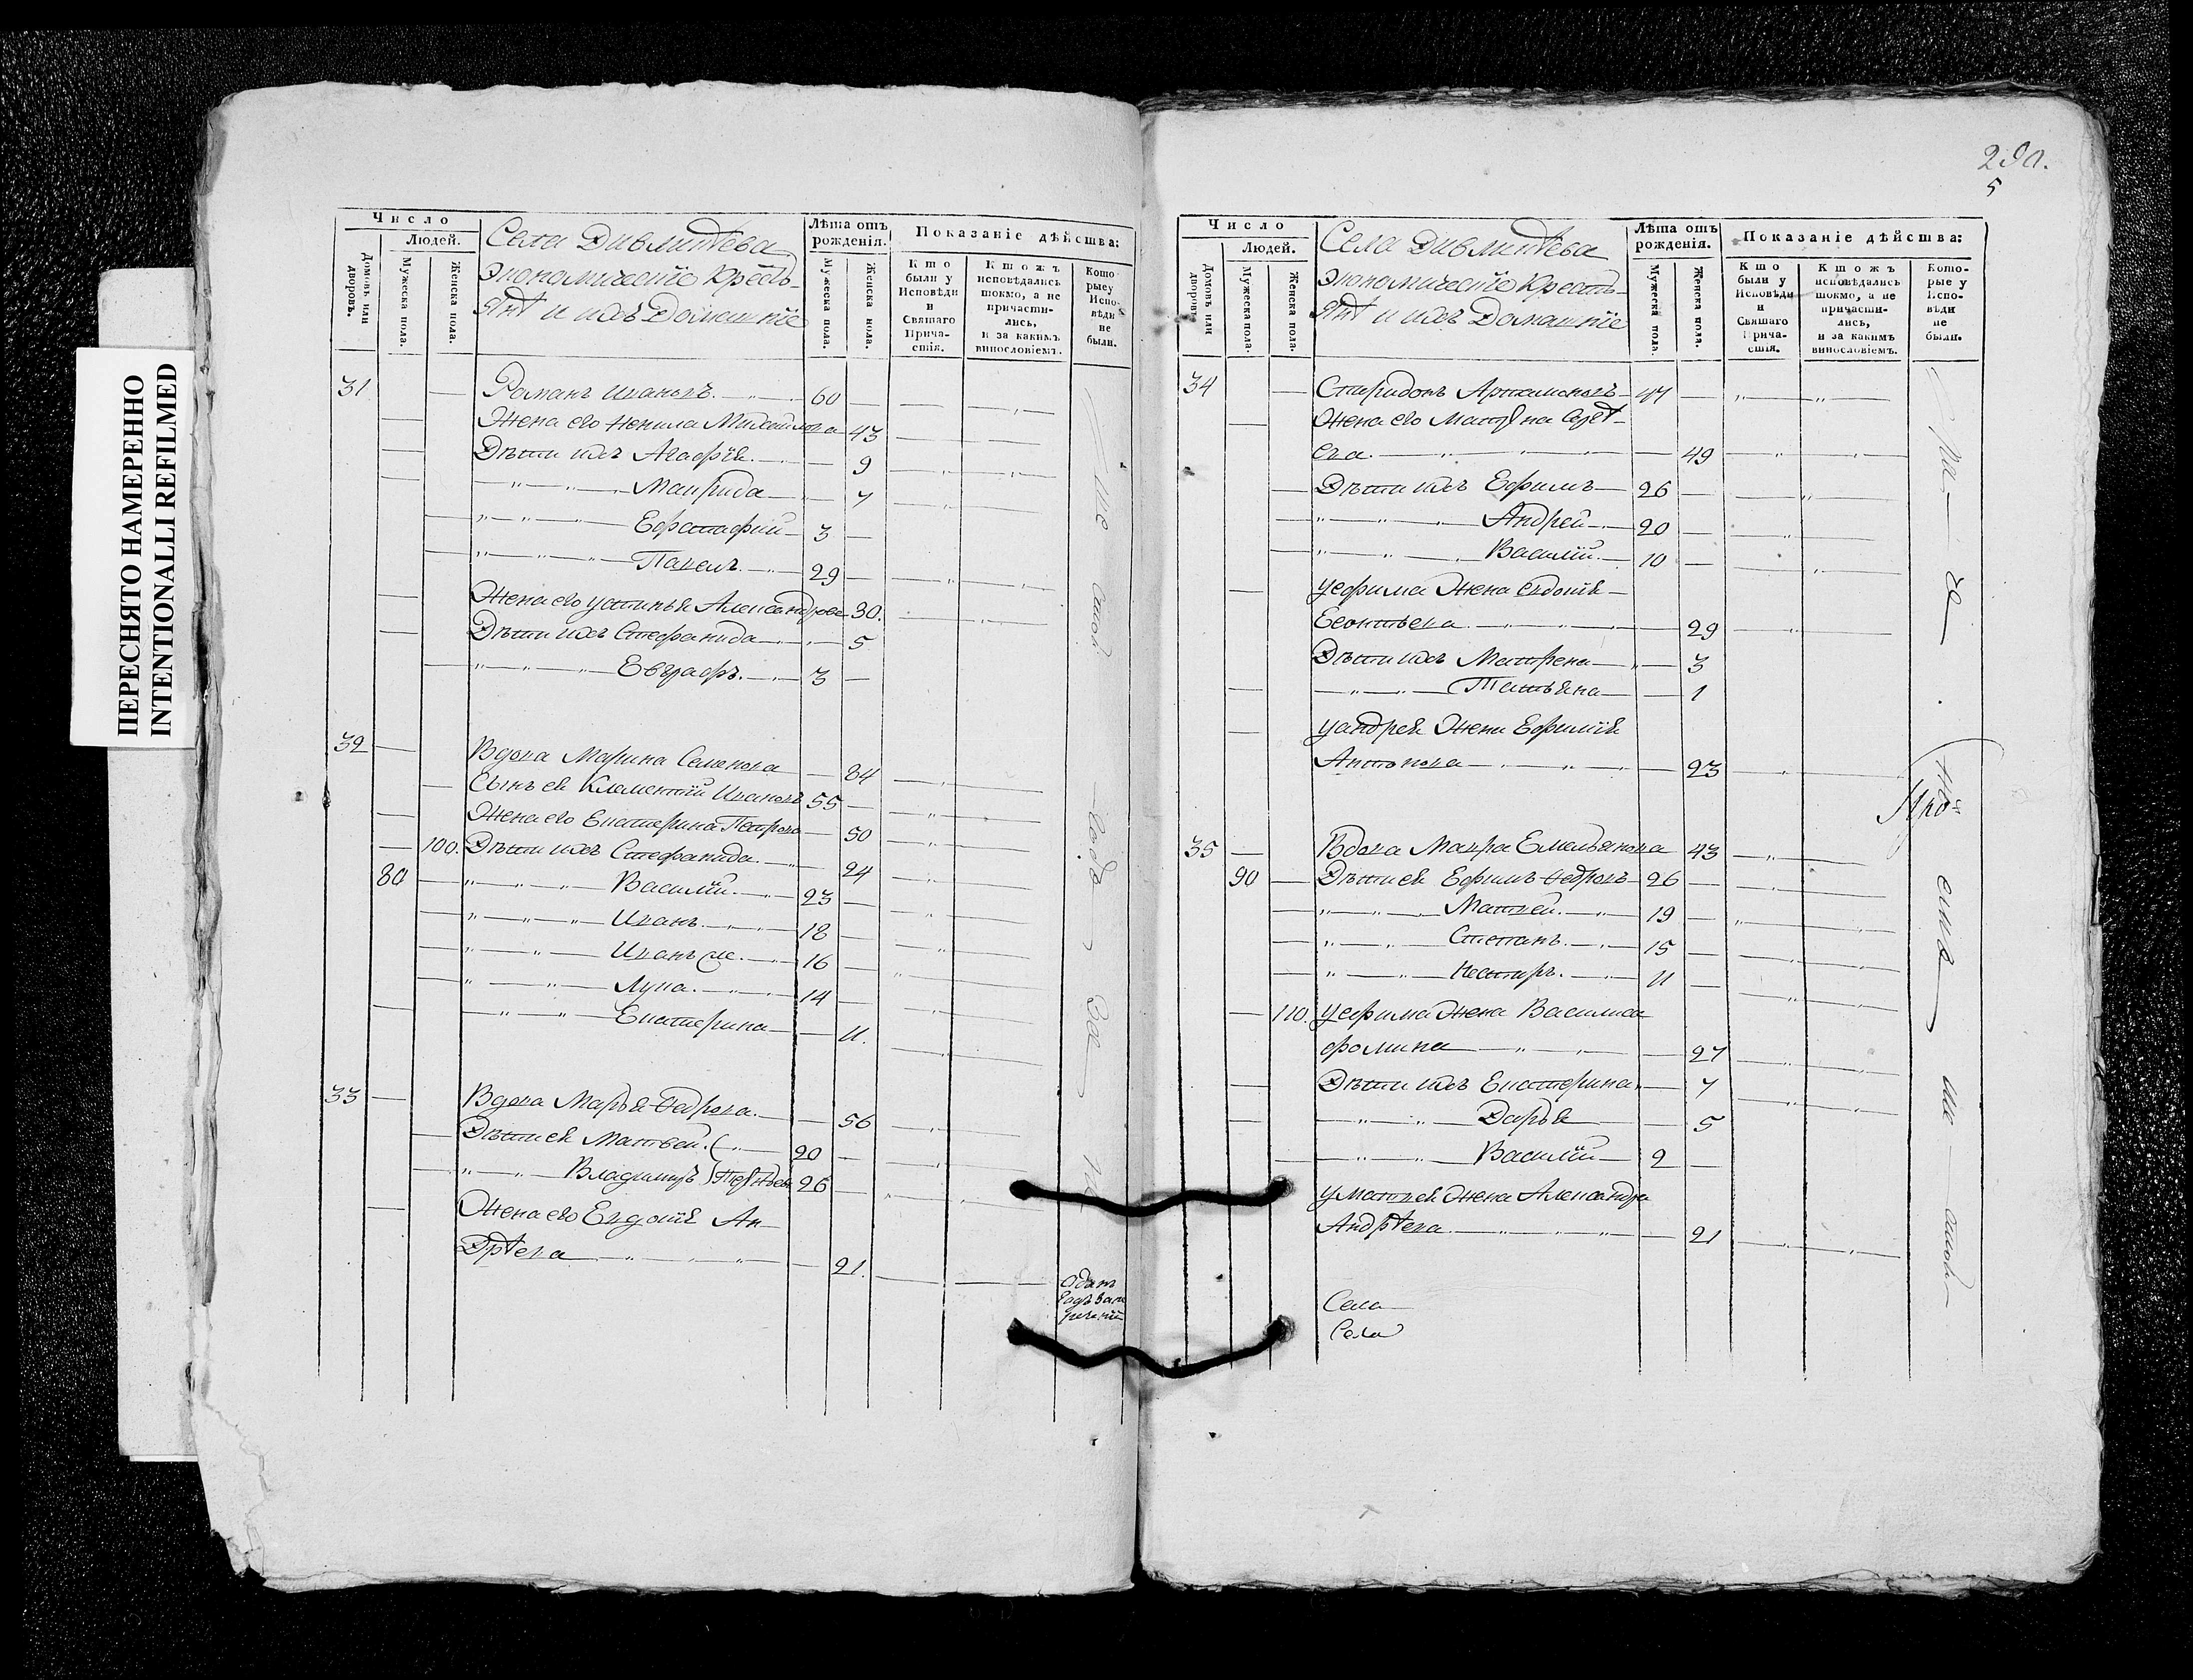 ПЕРЕСНЯТО НАМЕРЕННО
INTENTIONALLI REFILMED
Число
Людей.
Домовъ или дворовъ.
Мужеска пола.
Женска пола.
Села
Экономическіе Кресть-
янѣ и ихъ Домашніе
Лѣта отъ рожденія.
Мужеска пола.
Женска пола.
Показаніе дѣйства:
Кто были у Исповѣди и Святаго Прича-стія.
Ктожъ исповѣдались токмо, а не причасти-лись, и за какимъ винословіемъ.
Кото-рые у Испо-вѣди не были.
31 Романъ Ивановъ 60
Жена его Ненила Михайлова 43
Дѣти ихъ Агафія 9
Мавра 7
Ефстафий 3
Павелъ 29
Жена его Устинья Александрова 30.
Дѣти ихъ Стефанида 5
Евграфъ 3
32 Вдова Марина Семенова 84
Сынъ ея Климентий Ивановъ 55
Жена его Екатерина Петрова 50
100. Дѣти ихъ Стефанида 24
80 Василій 23
Иванъ 18
Иванъ 16
Лука 14
Екатерина 11.
33 Вдова Марья Федрова 56
Дѣти ея Матвей 20
Владимиръ 26
Жена его Евдокія Ан-
дрѣева 21.
290.
5
Число
Людей.
Домовъ или дворовъ
Мужеска пола.
Женска пола.
Села
Экономическіе Кресть-
янѣ и ихъ Домашніе
Лѣта отъ рожденія.
Мужеска пола.
Женска пола.
Показаніе дѣйства:
Кто были у Исповѣди и Святаго Прича-стія.
Ктожъ исповѣдались токмо, а не причасти-лись, и за какимъ винословіемъ.
Кото-рые у Испо-вѣди не были.
34 Спиридонъ Артамоновъ 47
Жена его Матрна
ева 49
Дѣти ихъ Ефимъ 26
Андрей 20
Василій 10
Уефима Жена Евдокія
Леонтьева 29
Дѣти ихъ Матрена 3
Татьяна 1
Уандрея Жена Ефимія
Антонова 23
35 Вдова Мавра Емельянова 43
90 Дѣти ея Ефимъ Федровъ 26
Матвей 19
Степанъ 15
Нестиръ 11
110. Уефима Жена Василиса
Фомина 27
Дѣти ихъ Екатерина 7
Дарья 5
Василій 2
Уматвея Жена Александра
Андрѣева 21
Села
Села